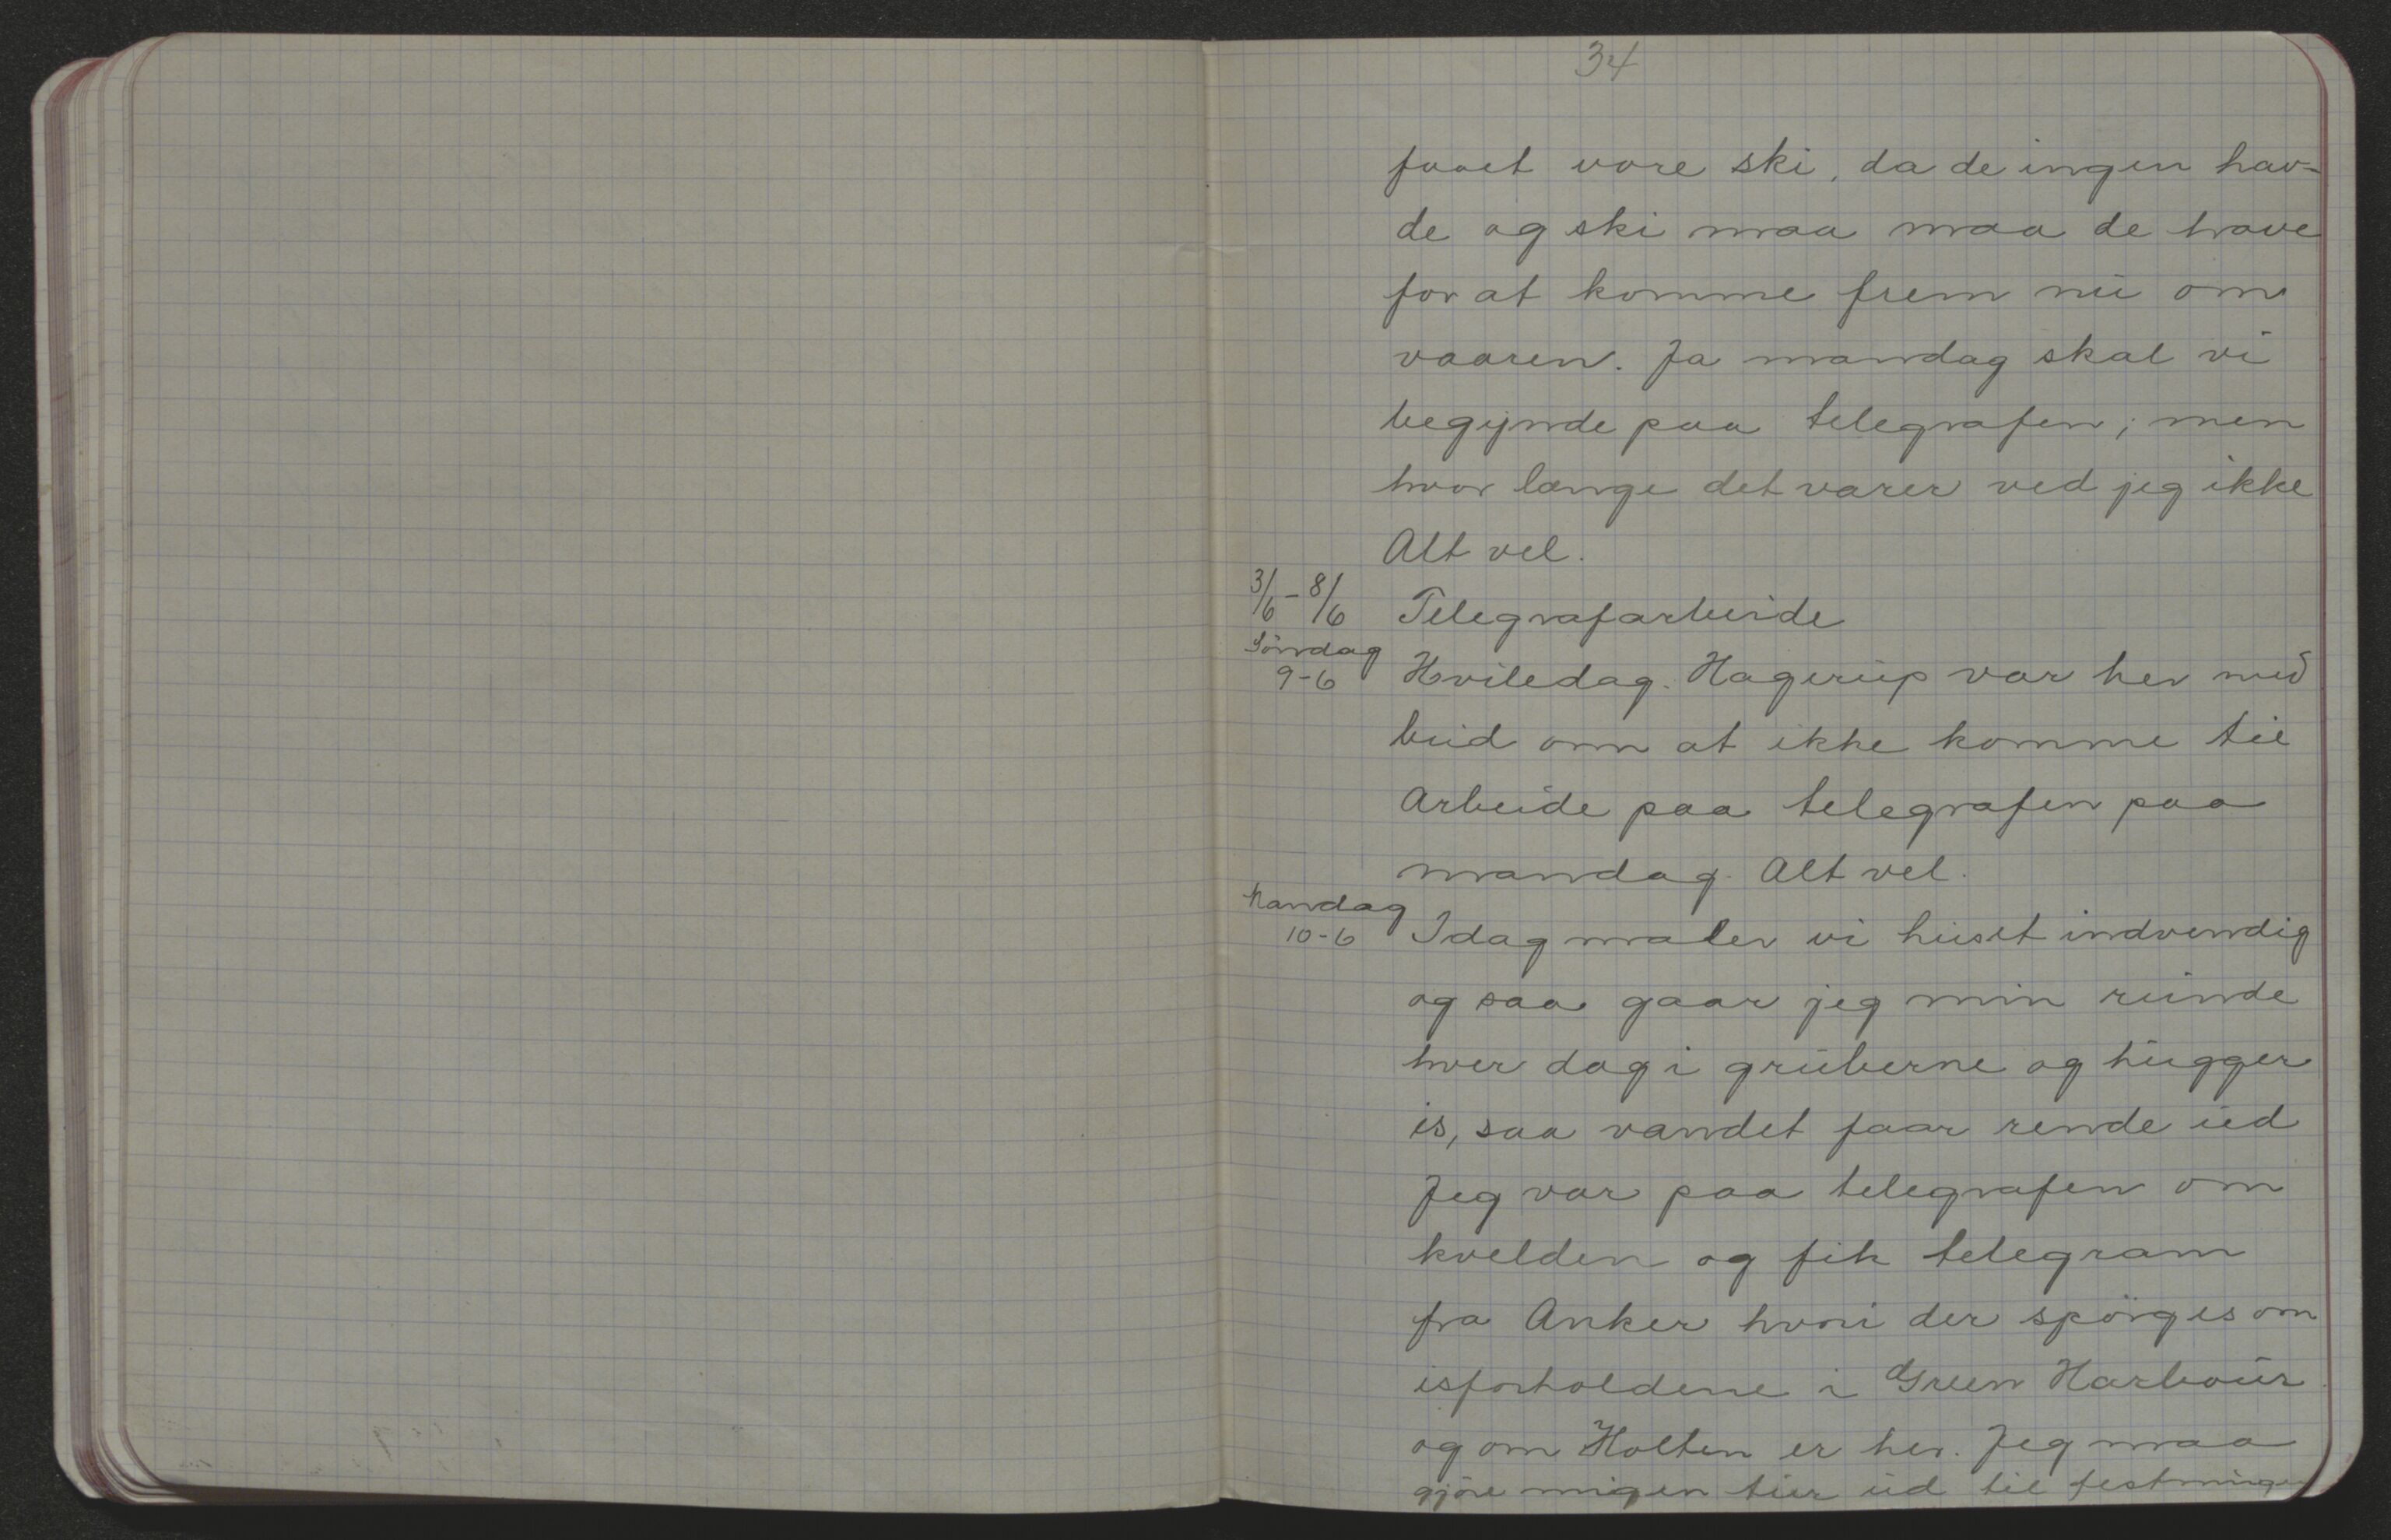 34
faaet vore ski, da de ingen hav-
de og ski maa maa de have
for at komme frem nu om
vaaren. Ja mandag skal vi
begynde paa telegrafen; men
hvor længe det varer ved jeg ikke
Alt vel.
3/6 - 8/6 Telegrafarbeide
Söndag
9-6 Hviledag. Hagerup var her med
bud om at ikke komme til
Arbeide paa telegrafen paa
mandag. Alt vel.
Mandag
10-6 Idag maler vi huset indvendig
og saa gaar jeg min runde
hver dag i gruberne og hugger
is, saa vandet faar rende ud
Jeg var paa telegrafen om
kvelden og fik telegram
fra Anker hvori der spörges om
isforholdene i Green Harbour
og om Holten er her. Jeg maa
gjöre migen tur ud til festningen